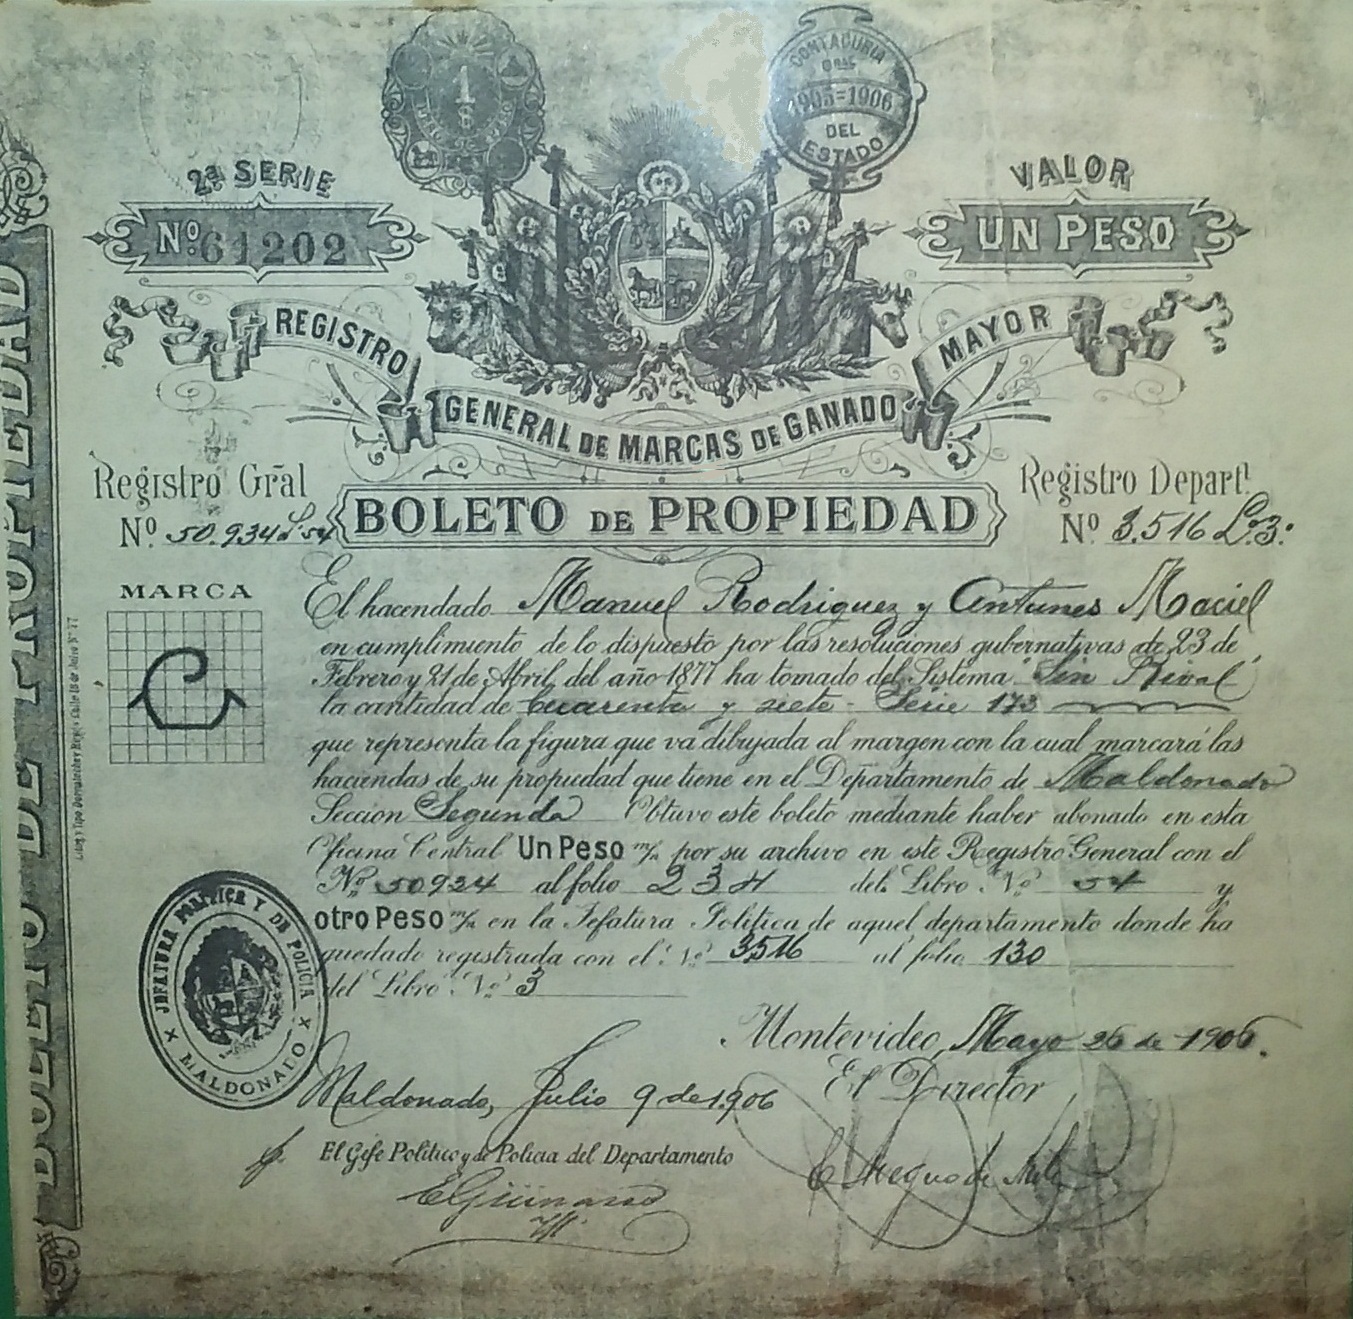 CONTADURIA
GRAL
1905=1906
DEL
ESTADO
2ª SERIE
Nº 61202
VALOR
UN PESO
REGISTRO
MAYOR
GENERAL DE MARCAS DE GANADO
Registro Gral
Nº 50.934 L. 54
BOLETO DE PROPIEDAD
Registro Depart!
Nº 3.516 Lº 3º
MARCA
El hacendado Manuel Rodriguez y Antunes Maciel
en cumplimiento de lo dispuesto por las resoluciones gubernativas de 23 de
Febrero y 21 de Abril del año 1877 ha tomado del Sistema Sin Rival
la cantidad de Cuarenta y siete - Serie 173
que representa la figura que va dibujada al margen con la cual marcará las
haciendas de su propiedad que tiene en el Departamento de Maldonado
Seccion Segunda Obtuvo este boleto mediante haber abonado en esta
Oficina Central Un Peso m/n por su archivo en este Registro General con el
Nº 50934 al folio 234 del Libro Nº 54 y
otro Peso m/n en la Jefatura Politica de aquel departamento donde ha
quedado registrada con el Nº 3516 al folio 130
del Libro Nº 3
JEFATURA POLITICA Y DE POLICIA
MALDONADO
Montevideo, Mayo 26 de 1906.
El Director
Maldonado, Julio 9 de 1906
El Gefe Politico y de Policia del Departamento
BOLETO DE PROPIEDAD